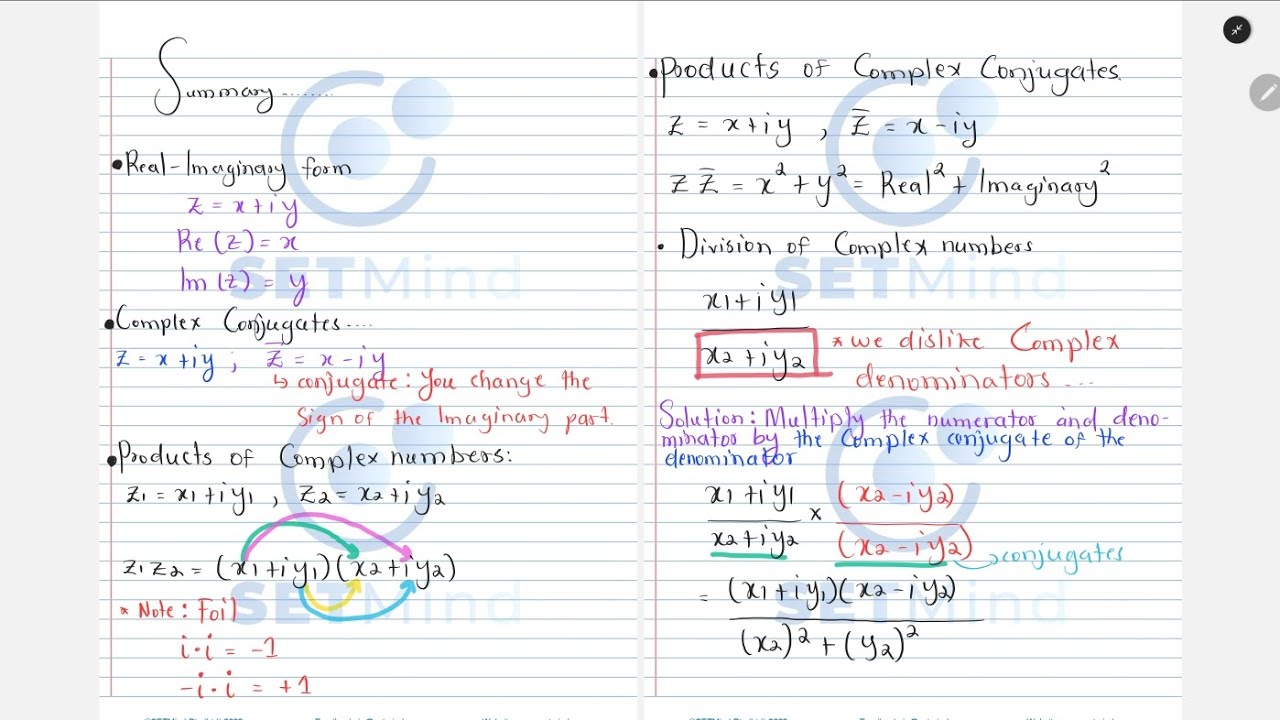 Summary........
•Real-Imaginary form
z = x+iy
Re (z) = x
Im (z) = y
•Complex Conjugates....
z = x+iy ; z̅ = x-iy
↳ conjugate: You change the
Sign of the Imaginary part.
•Products of Complex numbers:
z1 = x1+iy1 , z2 = x2+iy2
z1z2 = (x1+iy1)(x2+iy2)
* Note: Foil
i·i = -1
-i·i = +1
SETMind
SETMind
•Products of Complex Conjugates.
z = x+iy , z̅ = x-iy
z z̅ = x² + y² = Real² + Imaginary²
• Division of Complex numbers
x1+iy1
x2+iy2 * we dislike Complex
denominators ...
Solution: Multiply the numerator and deno-
minator by the Complex conjugate of the
denominator
x1+iy1 × (x2-iy2)
x2+iy2 (x2-iy2) → conjugates
= (x1+iy1)(x2-iy2)
(x2)² + (y2)²
SETMind
SETMind